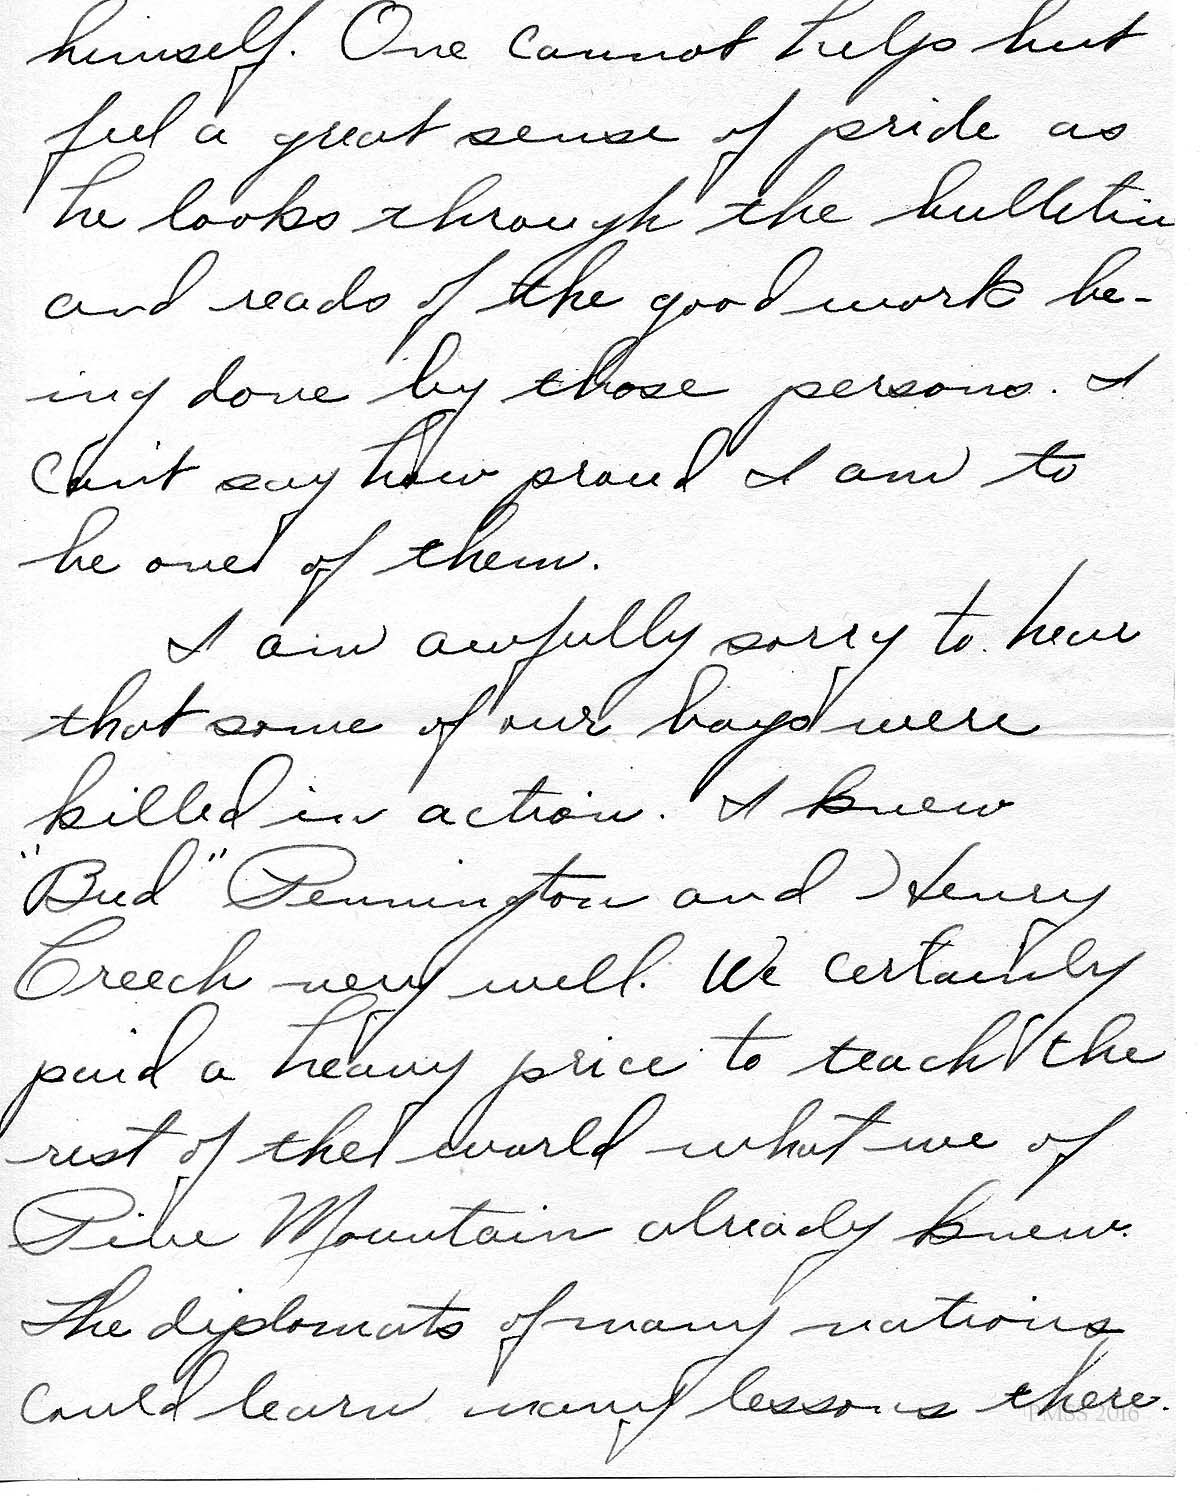 himself. One cannot help but
feel a great sense of pride as
he looks through the bulletin
and reads of the good work be-
ing done by those persons. I
can't say how proud I am to
be one of them.
I am awfully sorry to hear
that some of our boys were
killed in action. I knew
"Bud" Pennington and Henry
Creech very well. We certainly
paid a heavy price to teach the
rest of the world what we of
Pine Mountain already knew.
The diplomats of many nations
could learn many lessons there.
PMSS 2016